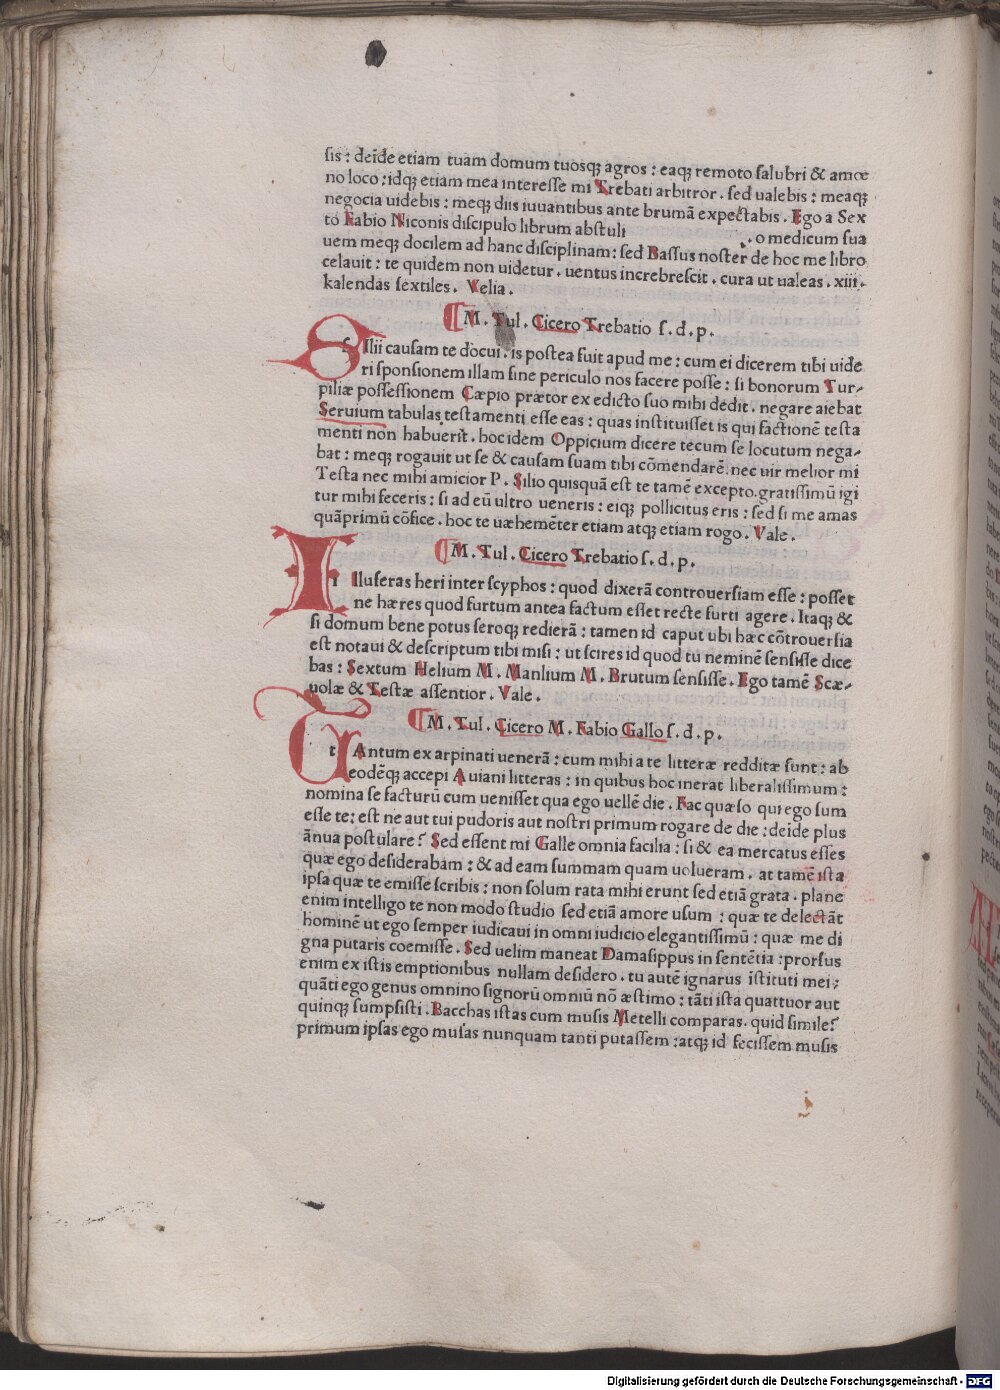 sis : deīde etiam tuam domum tuosqꝫ agros : eaqꝫ remoto salubri & amœ
no loco : idqꝫ etiam mea interesse mi Trebati arbitror . sed ualebis : meaqꝫ
negocia uidebis : meqꝫ diis iuuantibus ante brumā expectabis . Ego a Sex
to Fabio Niconis discipulo librum abstuli . o medicum sua
uem meqꝫ docilem ad hanc disciplinam : sed Bassus noster de hoc me libro
celauit : te quidem non uidetur . uentus increbrescit . cura ut ualeas . xiii .
kalendas sextiles . Velia .
M . Tul . Cicero Trebatio s . d . p .
SIlii causam te docui . is postea fuit apud me : cum ei dicerem tibi uide
ri sponsionem illam sine periculo nos facere posse : si bonorum Tur-
piliæ possessionem Cæpio prætor ex edicto suo mihi dedit . negare aiebat
Seruium tabulas testamenti esse eas : quas instituisset is qui factionē testa
menti non habuerit . hoc idem Oppicium dicere tecum se locutum nega-
bat : meqꝫ rogauit ut se & causam suam tibi cōmendarē . nec uir melior mi
Testa nec mihi amicior P . Silio quisquā est te tamē excepto . gratissimū igi
tur mihi feceris : si ad eū ultro ueneris : eiqꝫ pollicitus eris : sed si me amas
quāprimū cōfice . hoc te uæhemēter etiam atqꝫ etiam rogo . Vale .
M . Tul . Cicero Trebatio s . d . p .
IIlluseras heri inter scyphos : quod dixerā controuersiam esse : posset
ne hæres quod furtum antea factum esset recte furti agere . Itaqꝫ &
si domum bene potus seroqꝫ redierā : tamen id caput ubi hæc cōtrouersia
est notaui & descriptum tibi misi : ut scires id quod tu neminē sensisse dice
bas : Sextum Helium M . Manlium M . Brutum sensisse . Ego tamē Scæ-
uolæ & Testæ assentior . Vale .
M . Tul . Cicero M . Fabio Gallo s . d . p .
TAntum ex arpinati uenerā : cum mihi a te litteræ redditæ sunt : ab
eodēqꝫ accepi Auiani litteras : in quibus hoc inerat liberalissimum :
nomina se facturū cum uenisset qua ego uellē die . Fac quæso qui ego sum
esse te : est ne aut tui pudoris aut nostri primum rogare de die : deīde plus
ānua postulare ? Sed essent mi Galle omnia facilia : si & ea mercatus esses
quæ ego desiderabam : & ad eam summam quam uolueram . at tamē ista
ipsa quæ te emisse scribis : non solum rata mihi erunt sed etiā grata . plane
enim intelligo te non modo studio sed etiā amore usum : quæ te delectāt
hominē ut ego semper iudicaui in omni iudicio elegantissimū : quæ me di
gna putaris coemisse . Sed uelim maneat Damasippus in sentētia : prorsus
enim ex istis emptionibus nullam desidero . tu autē ignarus īstituti mei :
quāti ego genus omnino signorū omniū nō æstimo : tāti ista quattuor aut
quinqꝫ sumpsisti . Bacchas istas cum musis Metelli comparas . quid simile ?
primum ipsas ego musas nunquam tanti putassem : atqꝫ id fecissem musis
Digitalisierung gefördert durch die Deutsche Forschungsgemeinschaft - DFG